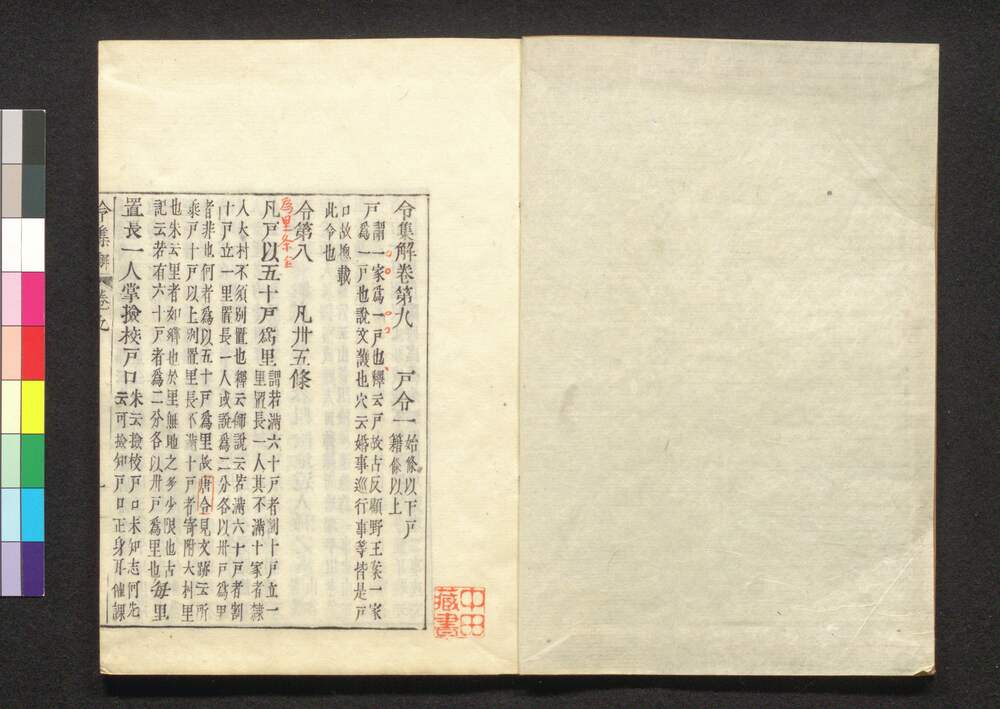 令集解卷第九　戸令一 始條以下戸籍條以上
戸 謂一家爲一戸也釋云戸故古反顧野王案一家
爲一戸也説文護也穴云婚事巡行事等皆是戸
口故惣載
此令也
令第八　凡卅五條
爲里条全
凡戸以五十戸爲里 謂若滿六十戸者割十戸立一
里置長一人其不滿十家者隷
入大村不須別置也釋云師説云若滿六十戸者割
十戸立一里置長一人或説爲二分各以卅戸爲里
者非也何者爲以五十戸爲里故唐令見文跡云所
乘戸十戸以上別置里長不滿十戸者寄附大村里
也朱云里者如鄕也於里無地之多少限也古記云若有六十戸者爲二分各以卅戸爲里也毎里
置長一人掌撿挍戸口 朱云撿挍戸口未知志何先
云可撿知戸口正身耳催課
令集解 卷九
一
中田
藏書